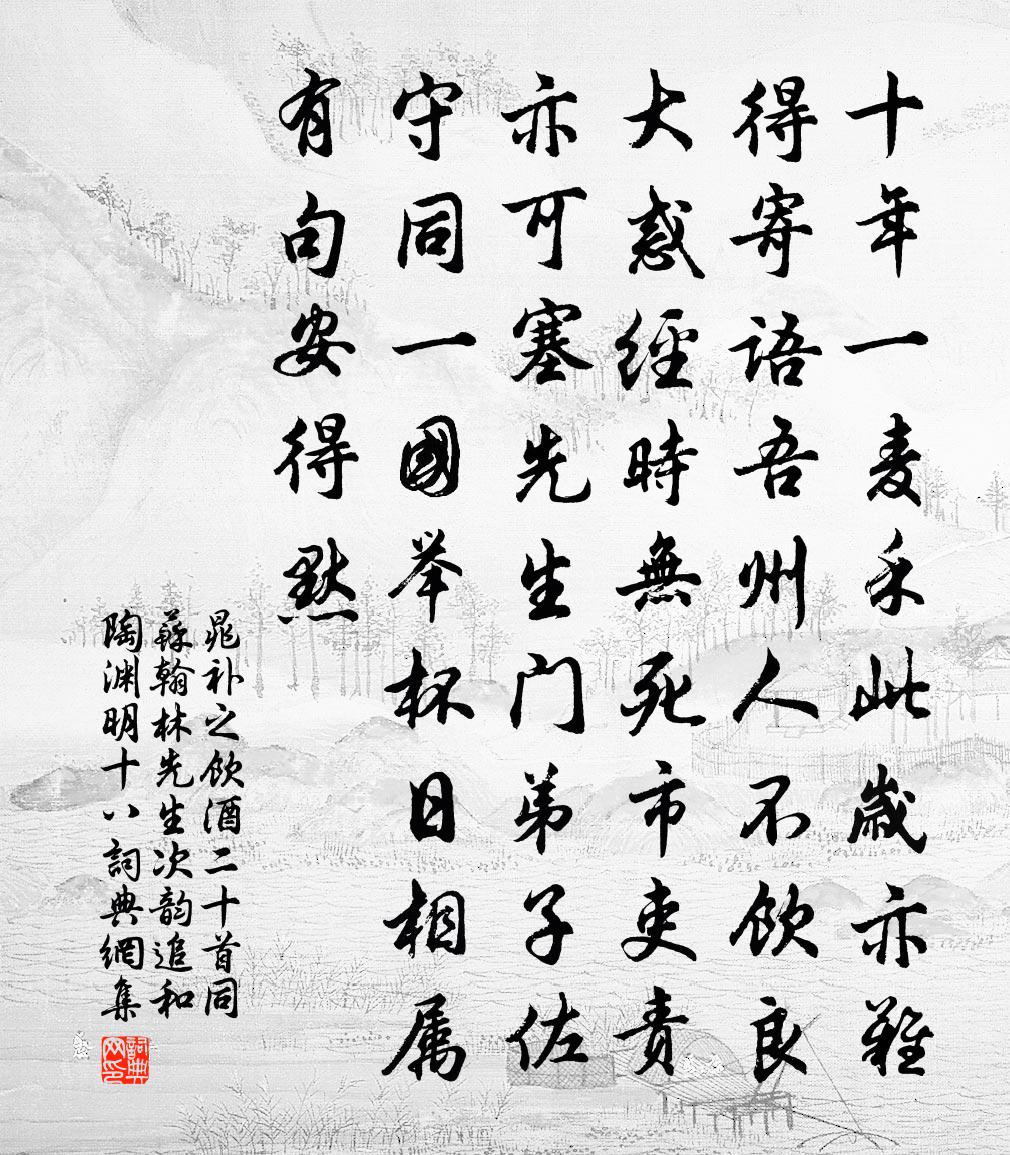 十年一麦禾此歲亦難
得寄語吾州人不飲良
大惑經時無死市吏责
亦可塞先生门弟子佐
守同一國举杯日相属
有句安得默
晁补之飲酒二十首同
蘇翰林先生次韵追和
陶渊明十八詞典網集
詞典网印